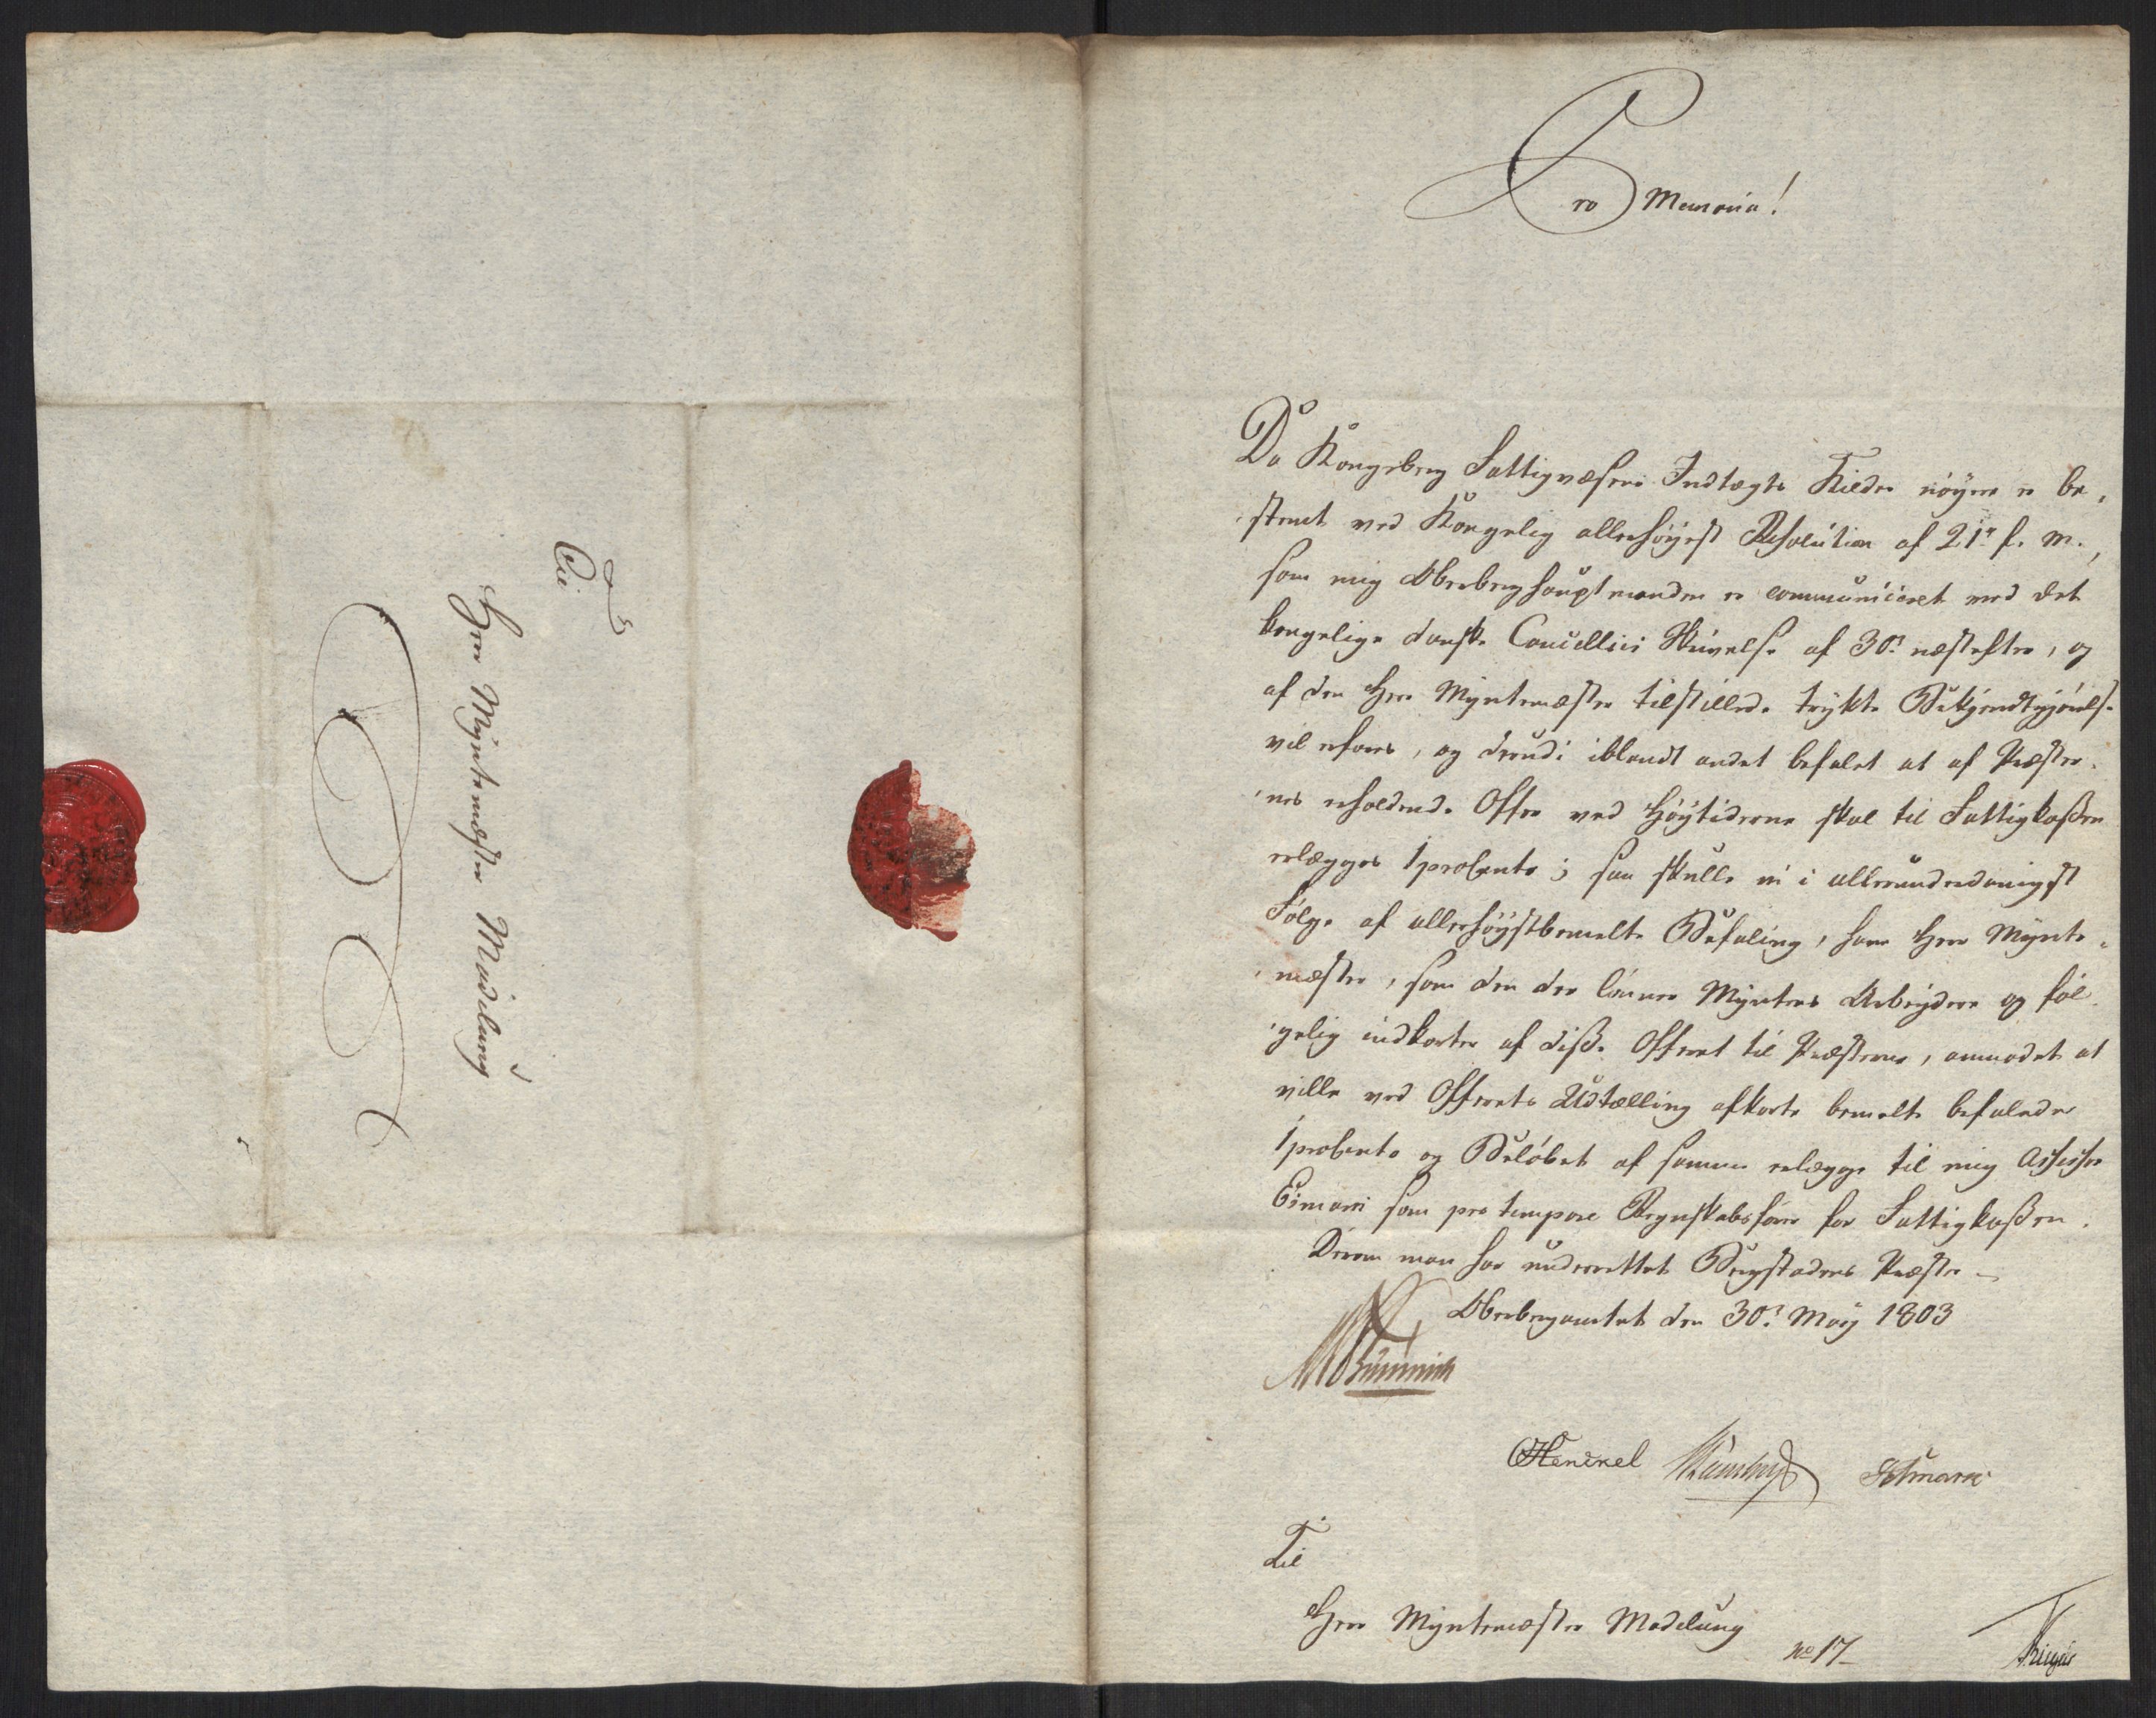 Til
Herr Myntemester Madelung
Pro Memoria!
Da Kongsberg Fattigvæsens Indtægts Kilder nøyere er be-
stemt ved Kongelig allerhøyest Resolution af 21de f. M.,
som mig Oberberghauptmanden er communiceret med det
kongelige danske Cancellies Skrivelse af 30te næstefter, og
af den Herr Myntemester tilstillede trykte Bekjendtgjørelse
vil erfares, og derudi iblandt andet befalet at af Præster-
nes erholdende Offer ved Høytiderne skal til Fattigkassen
erlægges 1 procento; saa skulle vi i allerunderdanigst
Følge af allerhøystbemelte Befaling, have Herr Mynte-
mester, som den der lønner Myntens Arbeydere og føl-
gelig indkorter af disse Offeret til Præsterne, anmodet at
ville ved Offerets Udtælling afkorte bemelte befalede
1 procento og Beløbet af samme erlægge til mig Assessor
Esmark som pro tempore Regnskabsfører for Fattigkassen.
Derom man har underrettet Bergstadens Præster
Oberbergamtet den 30te May 1803
Brünnich
Henckel
Esmark
Til
Herr Myntemester Madelung
No 17